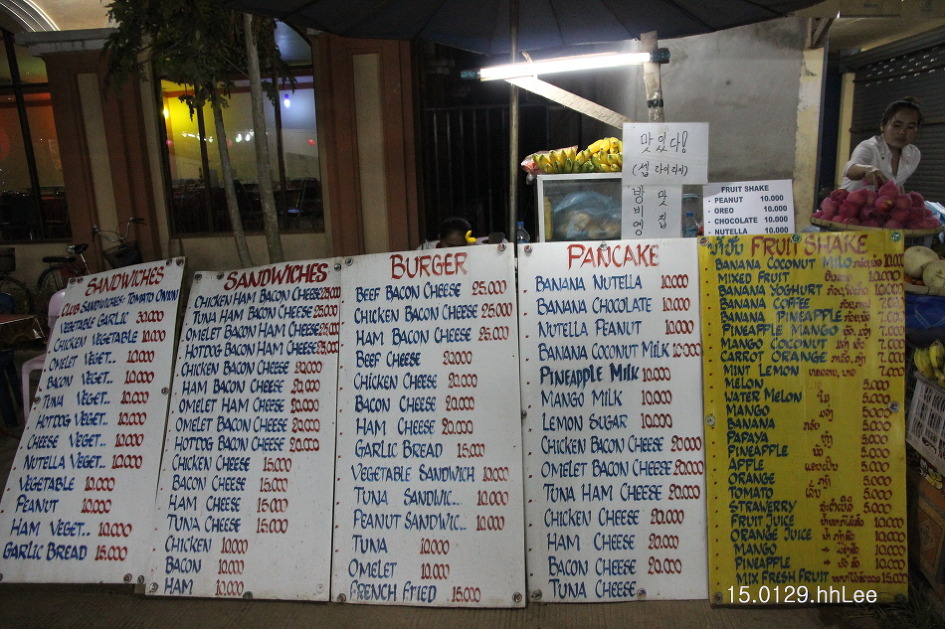 맛있다!
(셉 라이라이)
방비엥 맛집
FRUIT SHAKE
PEANUT 10.000
OREO 10.000
CHOCOLATE 10.000
NUTELLA 10.000
SANDWICHES
CLUB SANDWICHES: TOMATO ONION
VEGETABLE GARLIC 30.000
CHICKEN VEGETABLE 10.000
OMELET VEGET.. 10.000
BACON VEGET.. 10.000
TUNA VEGET.. 10.000
HOTDOG VEGET.. 10.000
CHEESE VEGET.. 10.000
NUTELLA VEGET.. 10.000
VEGETABLE 10.000
PEANUT 10.000
HAM VEGET.. 10.000
GARLIC BREAD 15.000
SANDWICHES
CHICKEN HAM BACON CHEESE 25.000
TUNA HAM BACON CHEESE 25.000
OMELET BACON HAM CHEESE 25.000
HOTDOG BACON HAM CHEESE 25.000
CHICKEN BACON CHEESE 20.000
HAM BACON CHEESE 20.000
OMELET HAM CHEESE 20.000
OMELET BACON CHEESE 20.000
HOTDOG BACON CHEESE 20.000
CHICKEN CHEESE 15.000
BACON CHEESE 15.000
HAM CHEESE 15.000
TUNA CHEESE 15.000
CHICKEN 10.000
BACON 10.000
HAM 10.000
BURGER
BEEF BACON CHEESE 25.000
CHICKEN BACON CHEESE 25.000
HAM BACON CHEESE 25.000
BEEF CHEESE 20.000
CHICKEN CHEESE 20.000
BACON CHEESE 20.000
HAM CHEESE 20.000
GARLIC BREAD 15.000
VEGETABLE SANDWICH 10.000
TUNA SANDWIC.. 10.000
PEANUT SANDWIC.. 10.000
TUNA 10.000
OMELET 10.000
FRENCH FRIED 15.000
PANCAKE
BANANA NUTELLA 10.000
BANANA CHOCOLATE 10.000
NUTELLA PEANUT 10.000
BANANA COCONUT MILK 10.000
PINEAPPLE MILK 10.000
MANGO MILK 10.000
LEMON SUGAR 10.000
CHICKEN BACON CHEESE 20.000
OMELET BACON CHEESE 20.000
TUNA HAM CHEESE 20.000
CHICKEN CHEESE 20.000
HAM CHEESE 20.000
BACON CHEESE 20.000
TUNA CHEESE
FRUIT SHAKE
BANANA COCONUT MILO 10.000
MIXED FRUIT 8.000
BANANA YOGHURT
BANANA COFFEE
BANANA PINEAPPLE 7.000
PINEAPPLE MANGO 7.000
MANGO COCONUT 7.000
CARROT ORANGE 7.000
MINT LEMON 7.000
MELON 5.000
WATER MELON 5.000
MANGO 5.000
BANANA 5.000
PAPAYA 5.000
PINEAPPLE 5.000
APPLE 5.000
ORANGE 5.000
TOMATO 5.000
STRAWERRY 5.000
FRUIT JUICE 10.000
ORANGE JUICE 10.000
MANGO 10.000
PINEAPPLE 10.000
MIX FRESH FRUIT 15.000
15.0129.hhLee